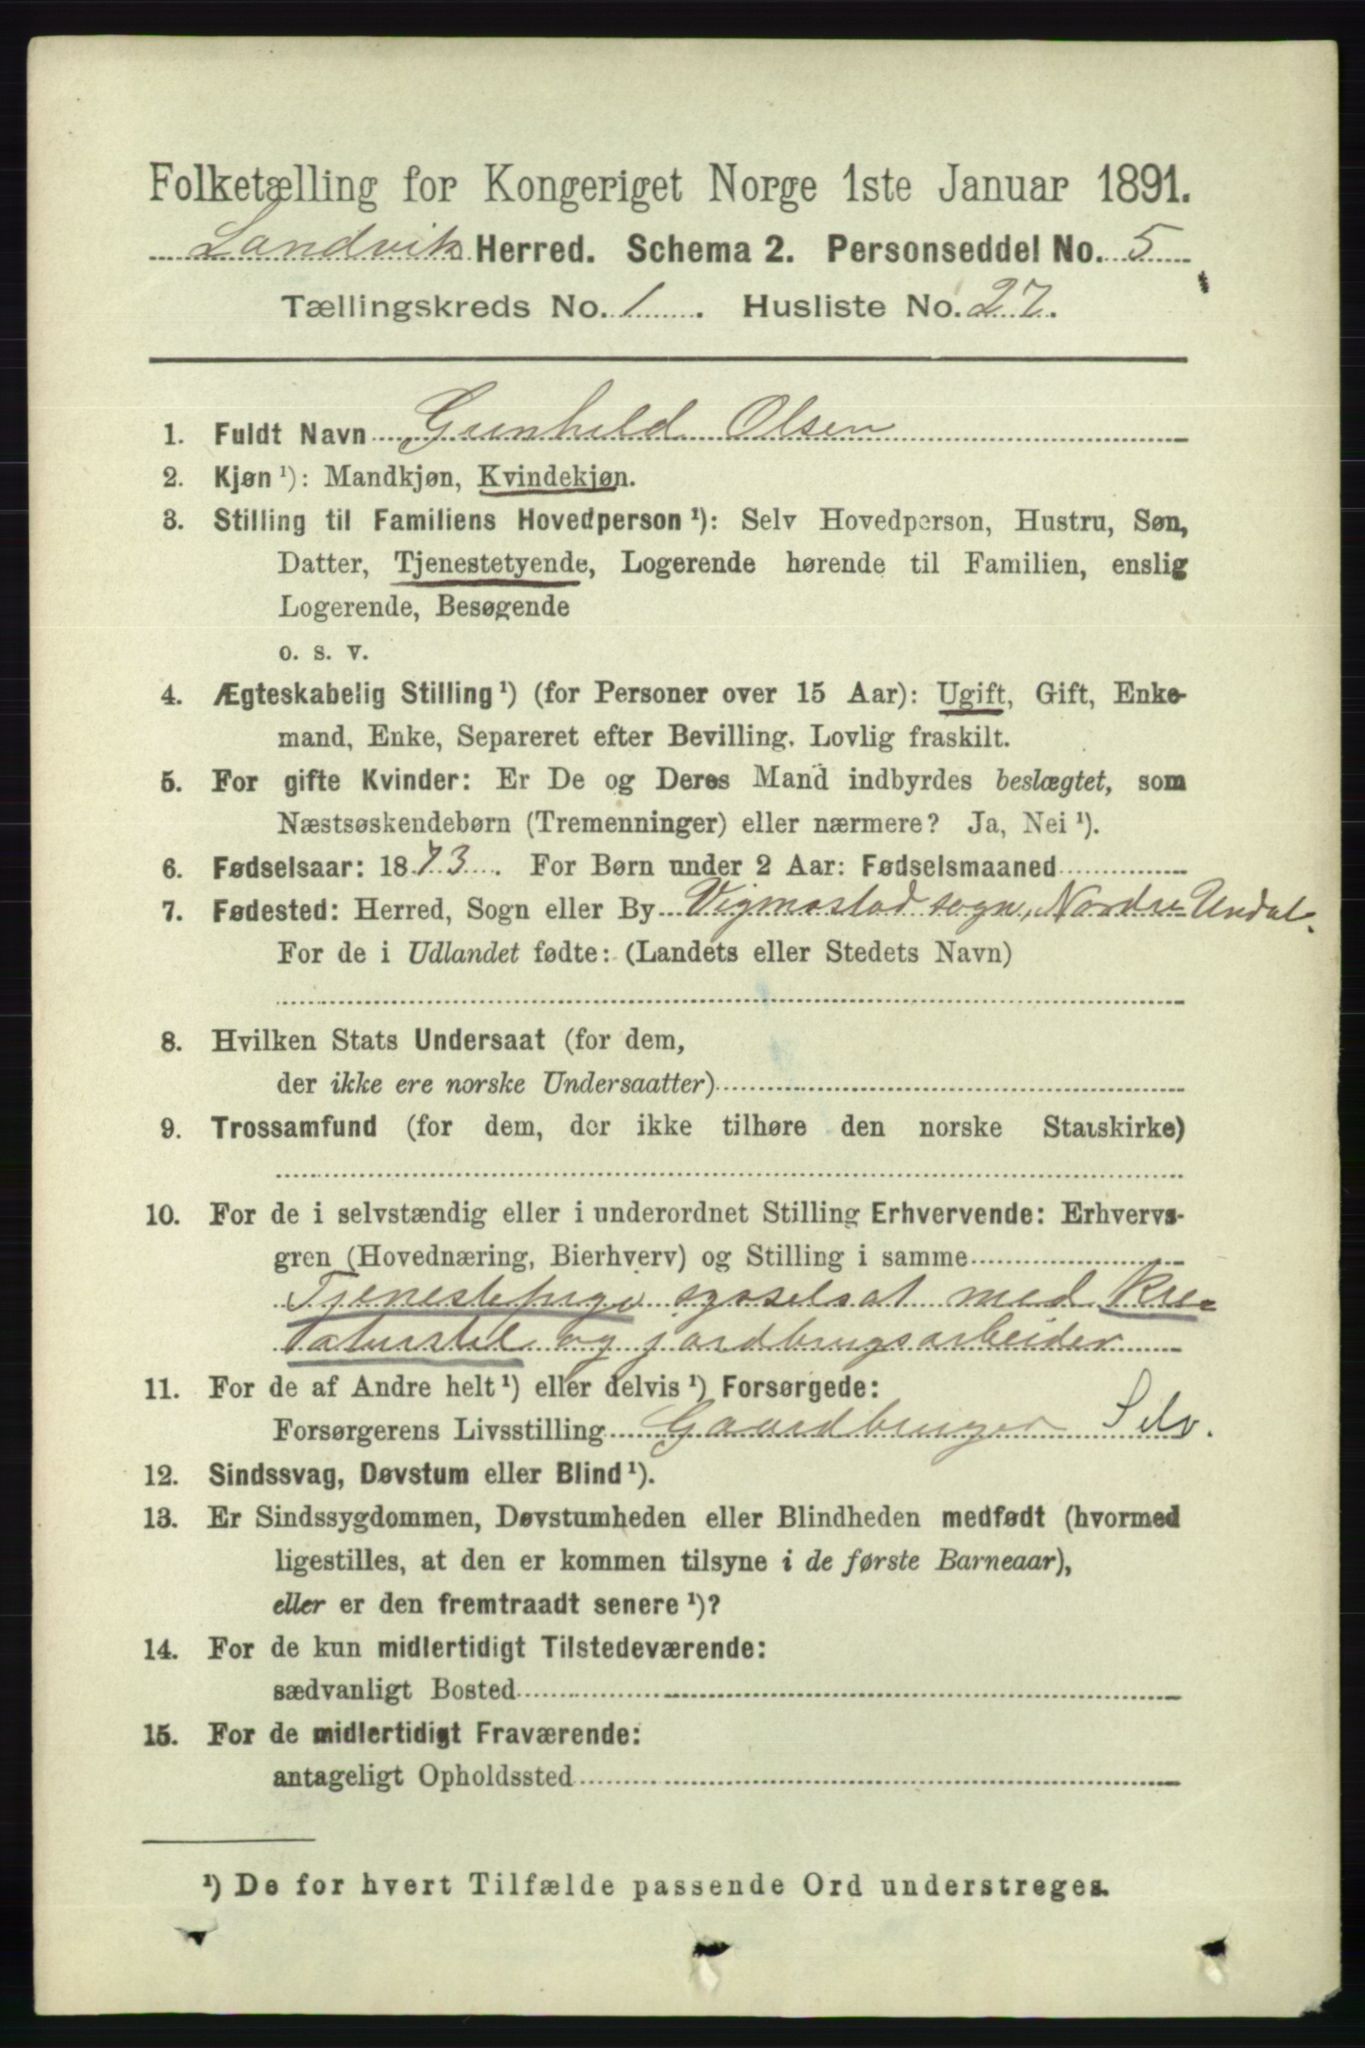 Folketælling for Kongeriget Norge 1ste Januar 1891.
Landvik Herred. Schema 2. Personseddel No. 5
Tællingskreds No. 1. Husliste No. 27.
1. Fuldt Navn Gunhild Olsen
2. Kjøn ¹): Mandkjøn, Kvindekjøn.
3. Stilling til Familiens Hovedperson ¹): Selv Hovedperson, Hustru, Søn,
Datter, Tjenestetyende, Logerende hørende til Familien, enslig
Logerende, Besøgende
o. s. v.
4. Ægteskabelig Stilling ¹) (for Personer over 15 Aar): Ugift, Gift, Enke-
mand, Enke, Separeret efter Bevilling. Lovlig fraskilt.
5. For gifte Kvinder: Er De og Deres Mand indbyrdes beslægtet, som
Næstsøskendebørn (Tremenninger) eller nærmere? Ja, Nei ¹).
6. Fødselsaar: 1873. For Børn under 2 Aar: Fødselsmaaned
7. Fødested: Herred, Sogn eller By Vigmostad sogn, Nordre Undal.
For de i Udlandet fødte: (Landets eller Stedets Navn)
8. Hvilken Stats Undersaat (for dem,
der ikke ere norske Undersaatter)
9. Trossamfund (for dem, der ikke tilhøre den norske Statskirke)
10. For de i selvstændig eller i underordnet Stilling Erhvervende: Erhvervs-
gren (Hovednæring, Bierhverv) og Stilling i samme
Tjenestepige sysselsat med Kre-
aturstel og jordbrugsarbeider
11. For de af Andre helt ¹) eller delvis ¹) Forsørgede:
Forsørgerens Livsstilling Gaardbruger Selv.
12. Sindssvag, Døvstum eller Blind ¹).
13. Er Sindssygdommen, Døvstumheden eller Blindheden medfødt (hvormed
ligestilles, at den er kommen tilsyne i de første Barneaar),
eller er den fremtraadt senere ¹)?
14. For de kun midlertidigt Tilstedeværende:
sædvanligt Bosted
15. For de midlertidigt Fraværende:
antageligt Opholdssted
¹) De for hvert Tilfælde passende Ord understreges.